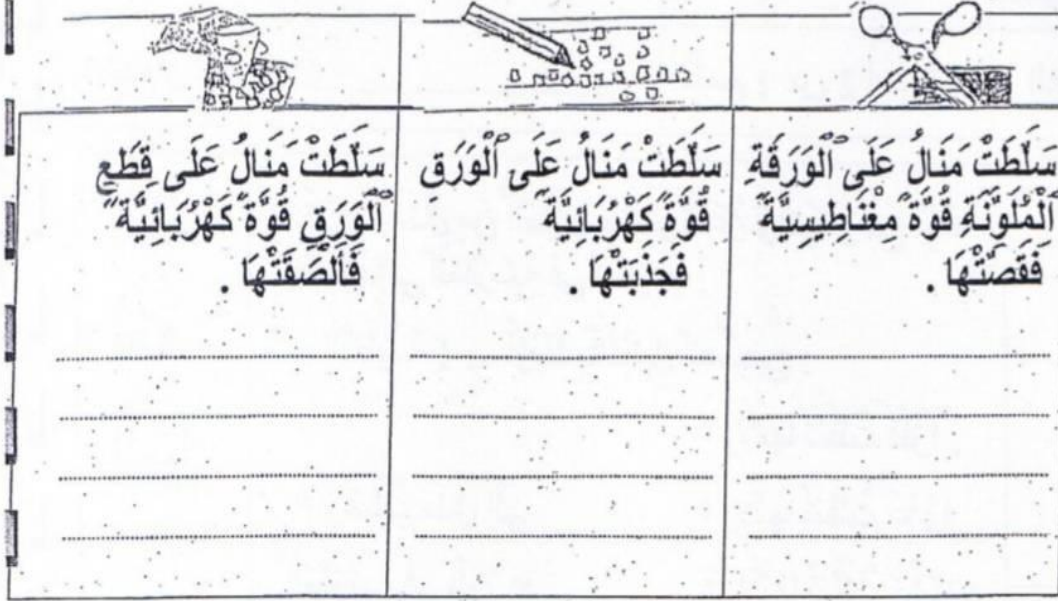 سَلَّطَتْ مَنَالُ عَلَى ٱلْوَرَقَةِ
ٱلْمُلَوَّنَةِ قُوَّةً مِغْنَاطِيسِيَّةً
فَقَصَّتْهَا .
سَلَّطَتْ مَنَالُ عَلَى ٱلْوَرَقِ
قُوَّةً كَهْرُبَائِيَّةً
فَجَذَبَتْهَا .
سَلَّطَتْ مَنَالُ عَلَى قِطَعِ
ٱلْوَرَقِ قُوَّةً كَهْرُبَائِيَّةً
فَأَلْصَقَتْهَا .